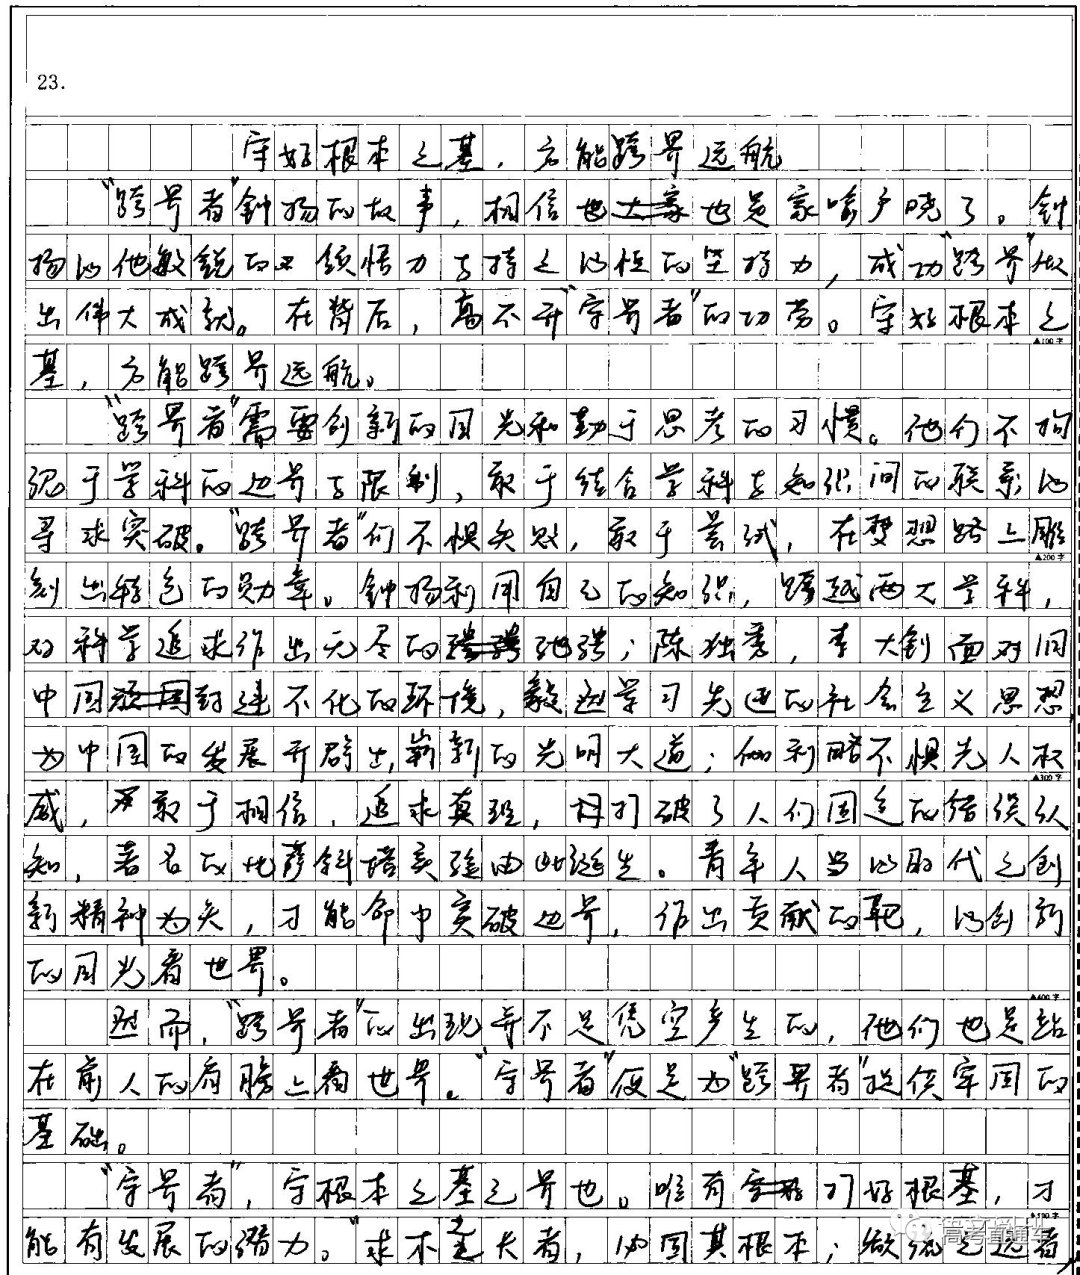 23.
守好根本之基，方能跨界远航
“跨界者”钟扬的故事，相信也是家喻户晓了。钟
扬以他敏锐的领悟力与持之以恒的坚持力，成功“跨界”做
出伟大成就。在背后，离不开“守界者”的功劳。守好根本之
▲100字
基，方能跨界远航。
“跨界者”需要创新的目光和勤于思考的习惯。他们不拘
泥于学科的边界与限制，敢于结合学科与知识间的联系以
寻求突破。“跨界者”们不惧失败，敢于尝试，在梦想路上雕
▲200字
刻出特色的勋章。钟扬利用自己的知识，跨越两大学科，
对科学追求作出无尽的地骋；陈独秀，李大钊面对旧
中国封建不化的环境，毅然学习先进的社会主义思想，
为中国的发展开辟出崭新的光明大道；伽利略不惧先人权
▲300字
威，敢于相信，追求真理，打破了人们固定的错误认
知，著名的比萨斜塔实验由此诞生。青年人当以时代之创
新精神为矢，才能命中突破边界，作出贡献的靶，以创新
的目光看世界。
▲400字
然而，“跨界者”的出现并不是凭空产生的，他们也是站
在前人的肩膀上看世界。“守界者”便是为“跨界者”提供牢固的
基础。
“守界者”，守根本之基之界也。唯有打好根基，才
▲500字
能有发展的潜力。“求木之长者，必固其根本；欲流之远者
高考直通车